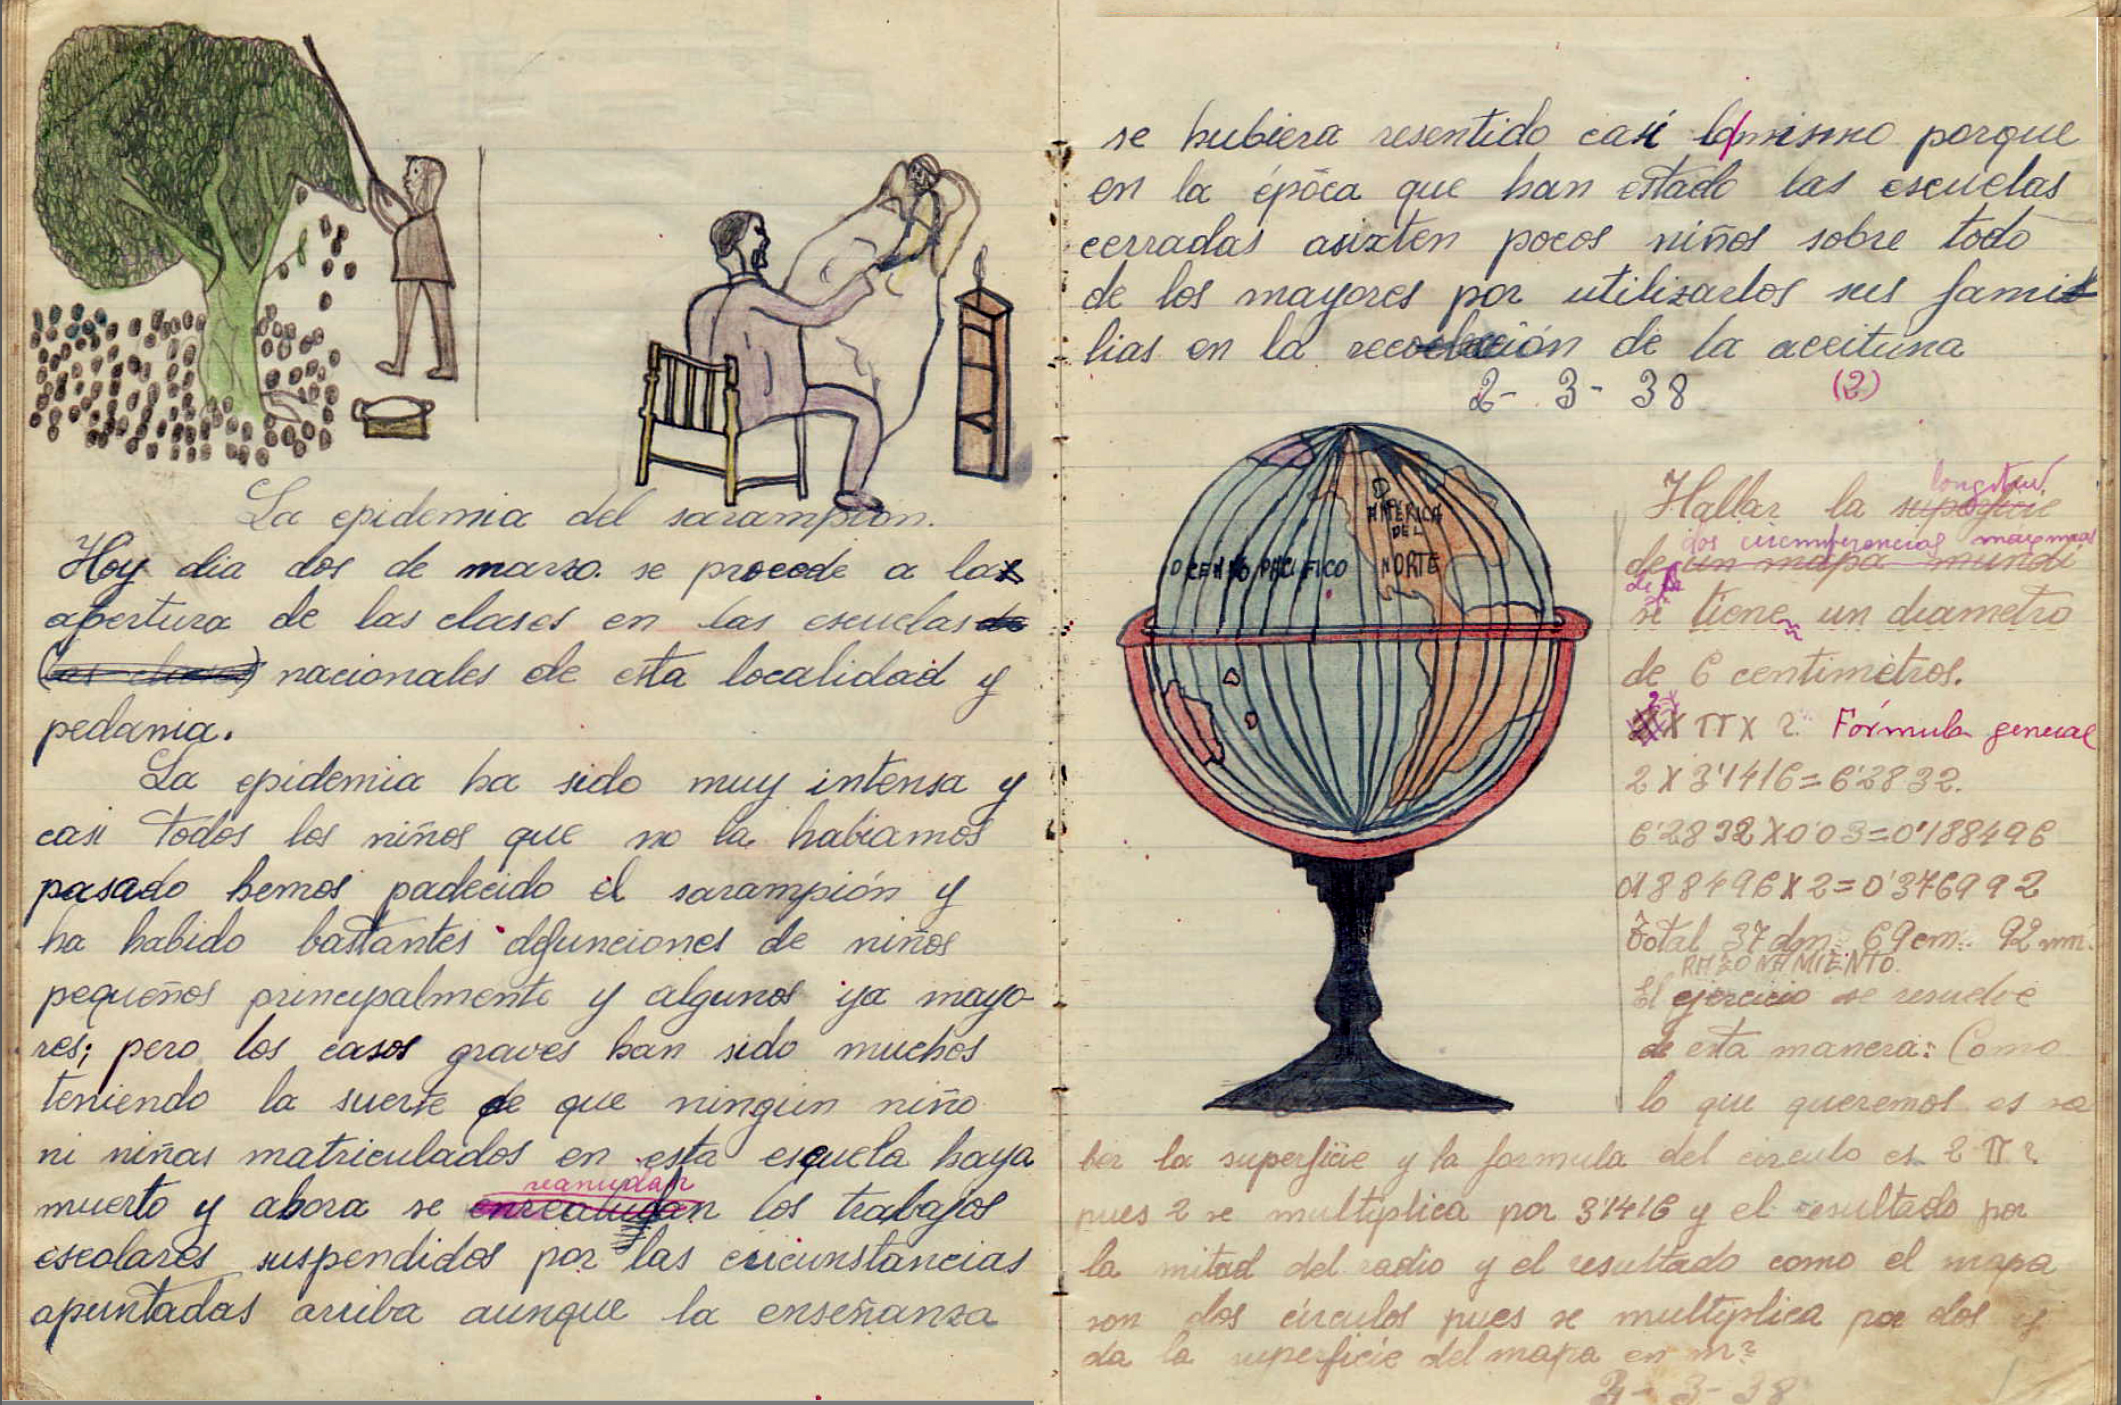 La epidemia del sarampión.
Hoy dia dos de marzo se procede a las
apertura de las clases en las escuelas de
(las clases) nacionales de esta localidad y
pedania.
La epidemia ha sido muy intensa y
casi todos los niños que no la habiamos
pasado hemos padecido el sarampión y
ha habido bastantes defunciones de niños
pequeños principalmente y algunos ya mayo-
res; pero los casos graves han sido muchos
teniendo la suerte de que ningún niño
ni niñas matriculados en esta escuela haya
reanudan
muerto y ahora se los trabajos
escolares suspendidos por las circunstancias
apuntadas arriba aunque la enseñanza
se hubiera resentido casi lo mismo porque
en la época que han estado las escuelas
cerradas asixten pocos niños sobre todo
de los mayores por utilizarlos sus fami
lias en la recolección de la aceituna
2- 3- 38 (2)
AMÉRICA
DEL
NORTE
OCEANO PACIFICO
longitud
Hallar la superficie
dos circunferencias maximas
de un mapa mundi
de la
se tiene un diametro
de 6 centimetros.
2 X π X r. Fórmula general
2 X 3'1416=6'2832.
6'2832 X 0'03=0'188496
0'188496 X 2=0'376992
Total 37 dm. 69 cm. 92 mm.
RAZONAMIENTO.
El ejercicio se resuelve
de esta manera: Como
lo que queremos es sa
ber la superficie y la formula del circulo es 2 π r
pues 2 se multiplica por 3'1416 y el resultado por
la mitad del radio y el resultado como el mapa
son dos círculos pues se multiplica por dos y
da la superficie del mapa en m²
2- 3- 38